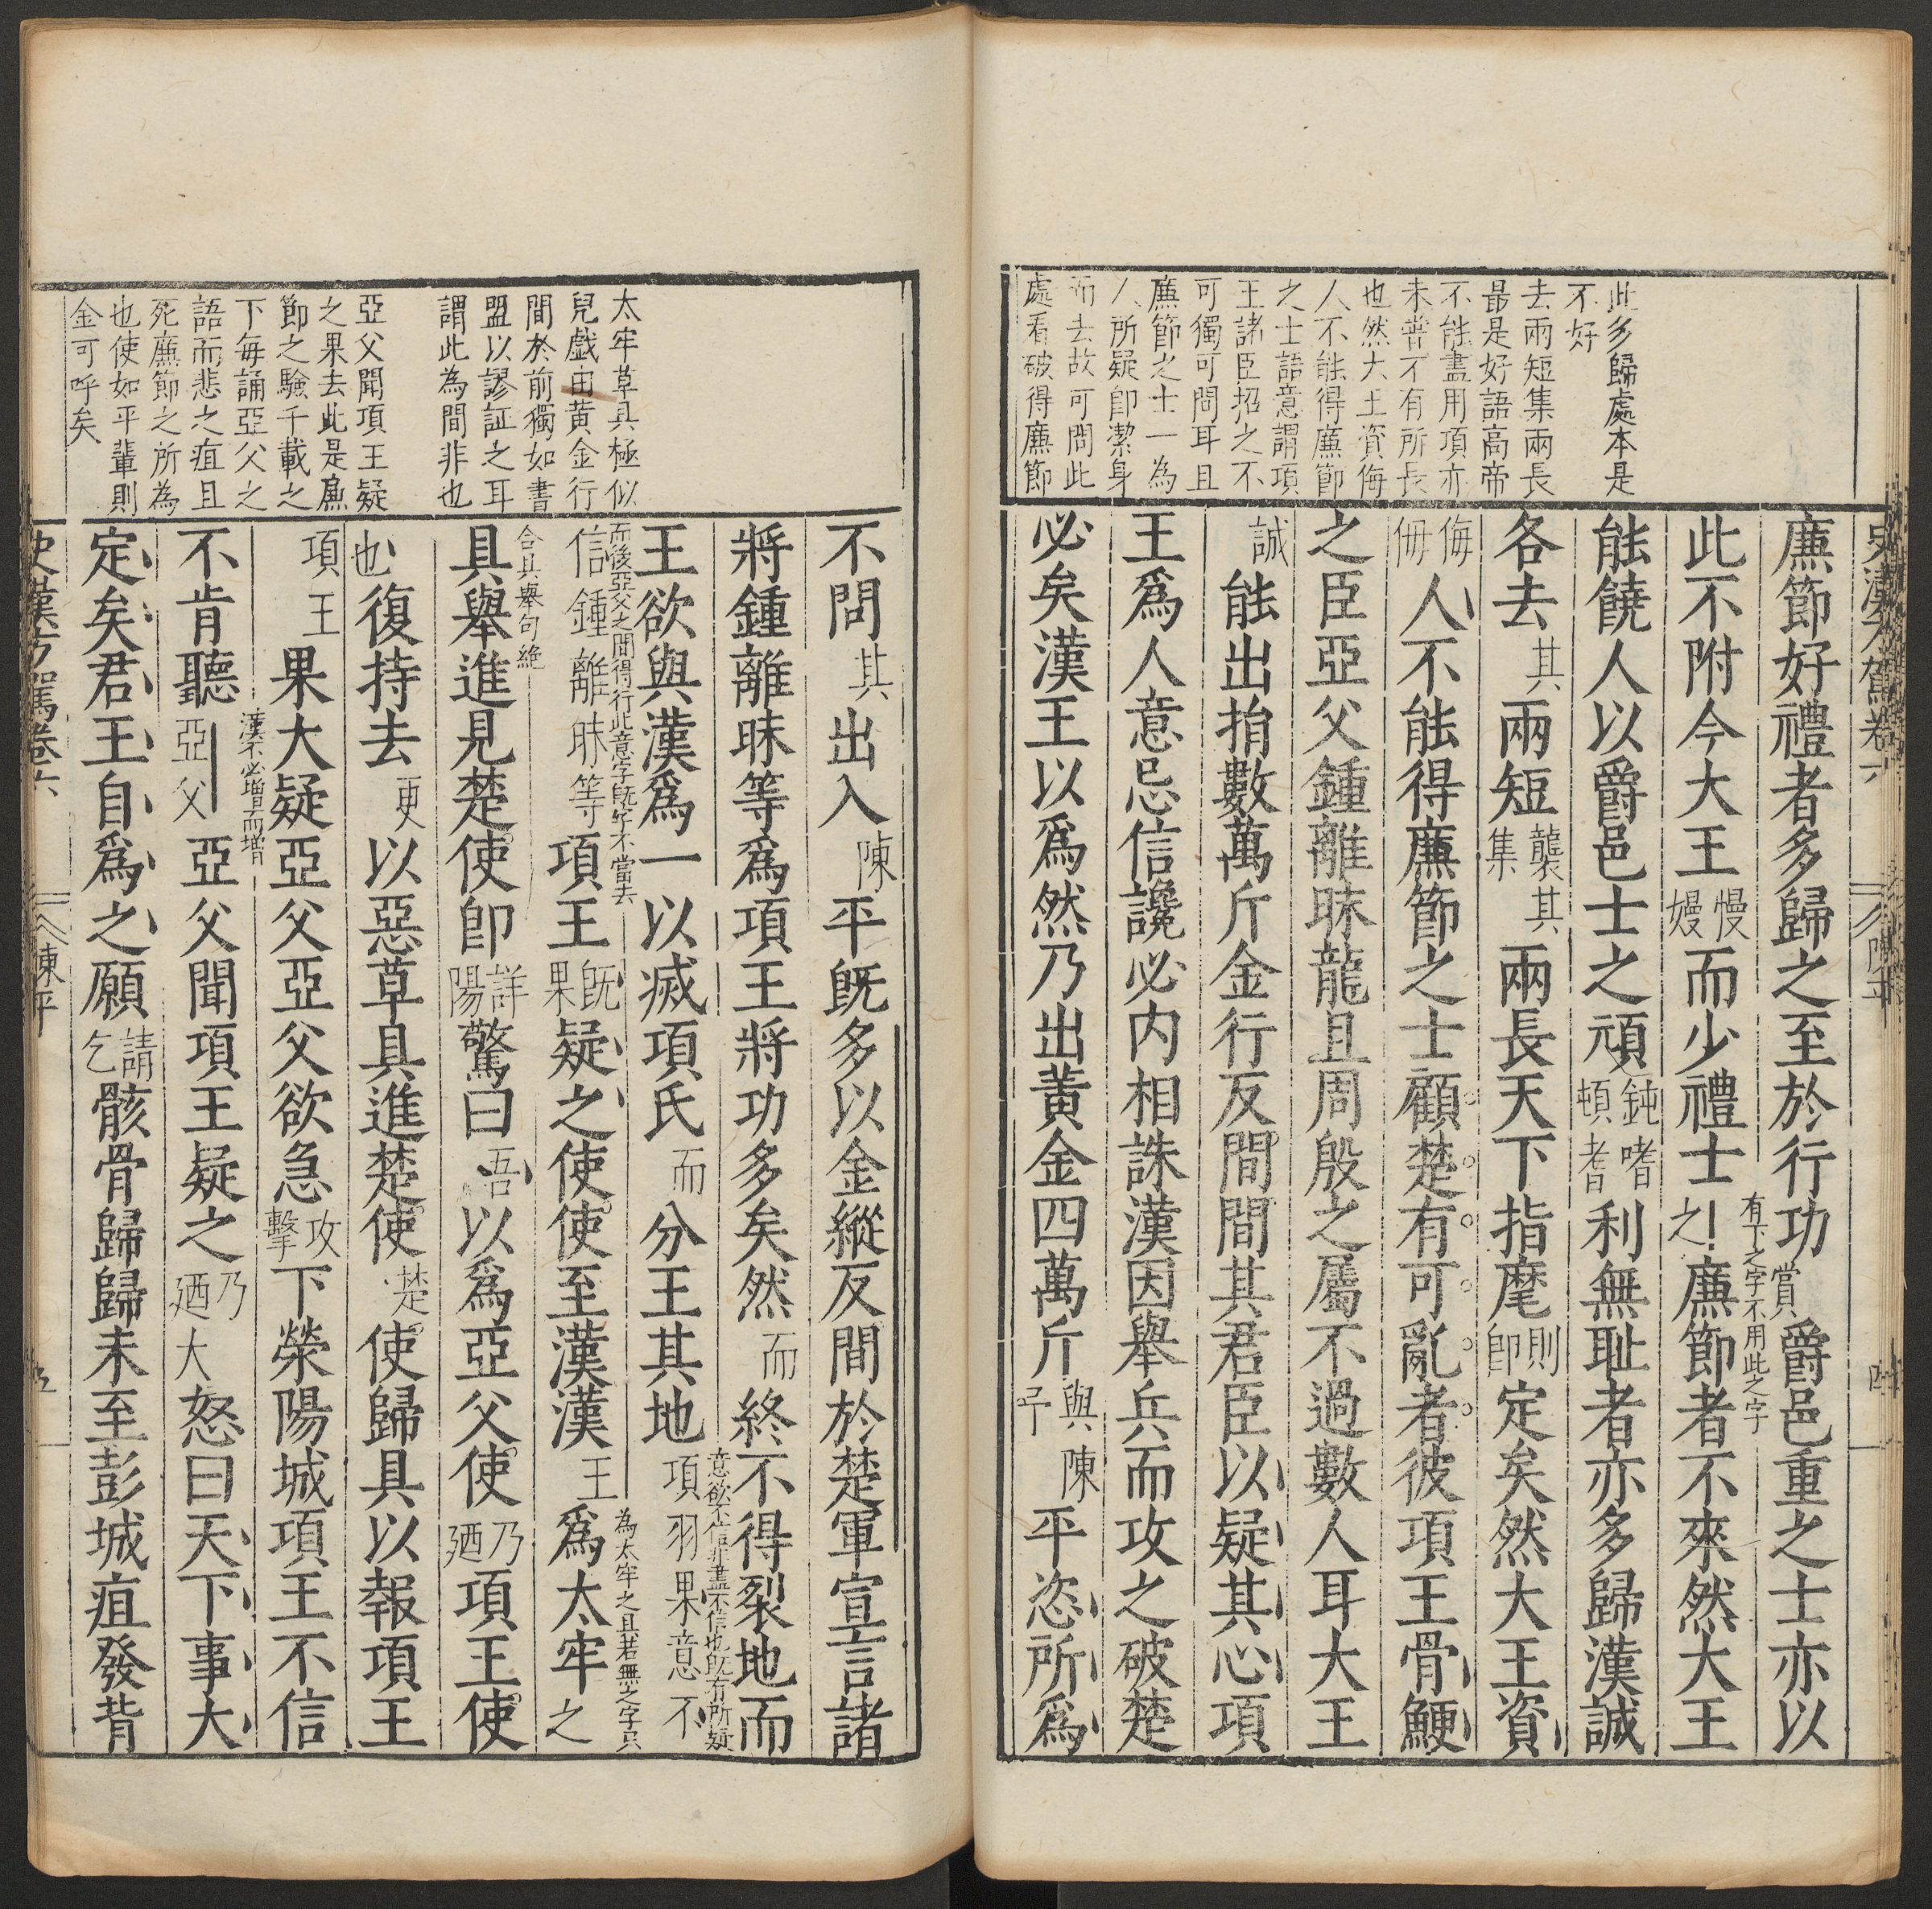 史漢方駕卷六
陳平
四
此多歸處本是
不好
去兩短集兩長
最是好語高帝
不能盡用項亦
未嘗不有所長
也然大王資侮
人不能得廉節
之士語意謂項
王諸臣招之不
可獨可間耳且
廉節之士一為
人所疑卽潔身
而去故可間此
處看破得廉節
廉節好禮者多歸之至於行功賞爵邑重之士亦以
有下之字不用此之字
此不附今大王慢嫚而少禮士之廉節者不來然大王
能饒人以爵邑士之頑鈍頓嗜耆利無耻者亦多歸漢誠
各去其兩短襲集其兩長天下指麾則卽定矣然大王資
侮侮人不能得廉節之士顧楚有可亂者彼項王骨鯁
之臣亞父鍾離眛龍且周殷之屬不過數人耳大王
誠能出捐數萬斤金行反間間其君臣以疑其心項
王爲人意忌信讒必内相誅漢因舉兵而攻之破楚
必矣漢王以爲然乃出黃金四萬斤與予陳平恣所爲
太牢草具極似
兒戲由黄金行
間於前獨如書
盟以謬証之耳
謂此為間非也
亞父聞項王疑
之果去此是廉
節之驗千載之
下每誦亞父之
語而悲之疽且
死廉節之所為
也使如平輩則
金可呼矣
不問其出入陳平旣多以金縱反間於楚軍宣言諸
將鍾離眛等爲項王將功多矣然而終不得裂地而
意欲不信非盡不信也旣有所疑
王欲與漢爲一以滅項氏而分王其地項羽果意不
而後亞父之間得行此意字旣字不當去
信鍾離眛等項王旣果疑之使使至漢漢王爲太牢之
為太牢之且若無之字只
合具舉句絶
具舉進見楚使卽詳陽驚曰吾以爲亞父使乃廼項王使
也復持去更以惡草具進楚使楚使歸具以報項王
項王果大疑亞父亞父欲急攻擊下榮陽城項王不信
漢不必增而增
不肯聽亞父亞父聞項王疑之乃廼大怒曰天下事大
定矣君王自爲之願請乞骸骨歸歸未至彭城疽發背
史漢方駕卷六
陳平
五